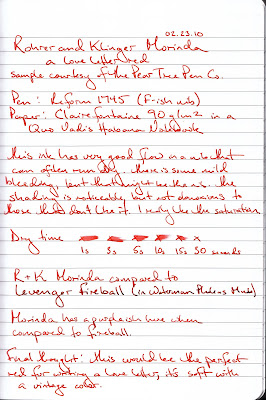 02.23.10
Rohrer and Klinger Morinda
a love letter red
sample courtesy of the Pear Tree Pen Co.
Pen: Reform 1745 (F-ish nib)
Paper: Clairefontaine 90g/m2 in a
Quo Vadis Habana Notebook
This ink has very good flow in a nib that
can often run dry. There is some mild
bleeding, but that might be the nib. The
shading is noticeable, but not obnoxious to
those that don't like it. I really like the saturation.
Dry time
1s 3s 5s 10s 15s 30 seconds
R+K Morinda compared to
Levenger fireball (in Waterman Phileas Mud)
Morinda has a purpleish hue when
compared to fireball.
Final thought: this would be the perfect
red for writing a love letter, it's soft with
a vintage color.